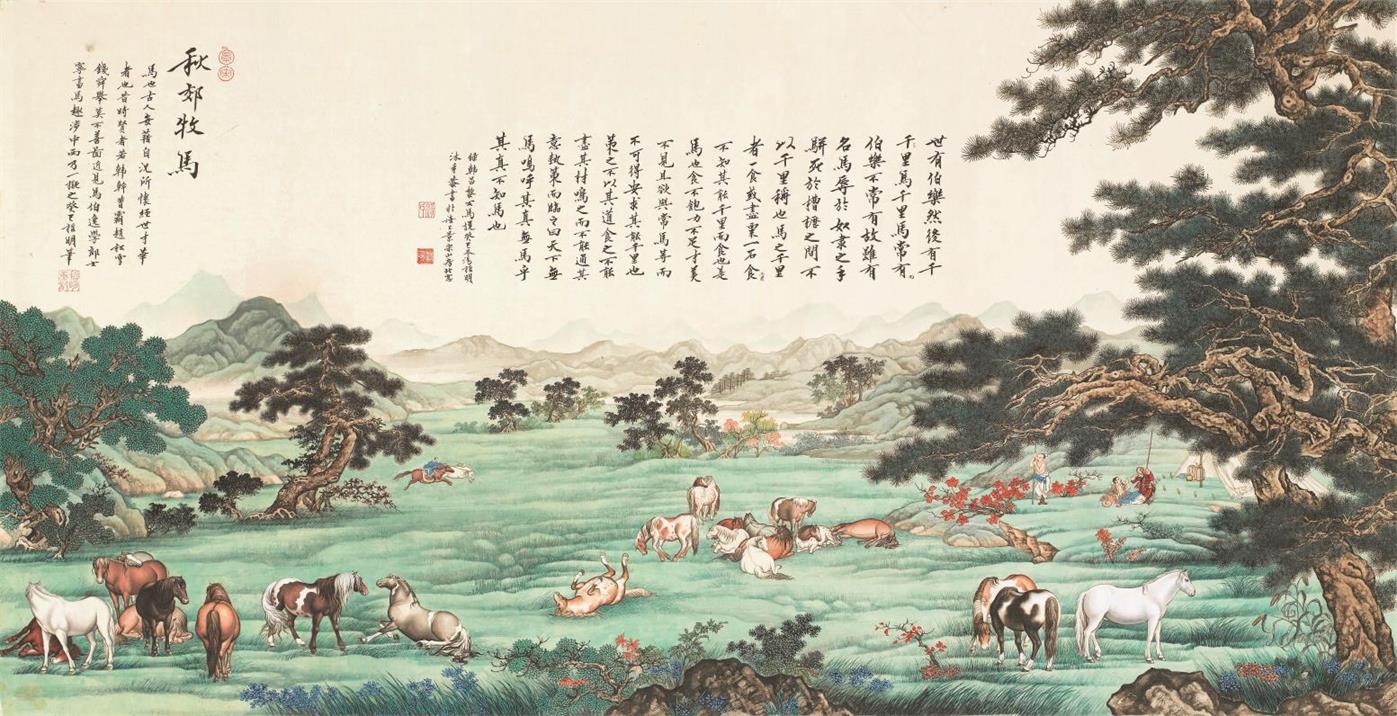 世有伯樂然後有千
千里馬千里馬常有
伯樂不常有故雖有
名馬辱於奴隶之手
駢死於槽櫪之間不
以千里稱也馬之千里
者一食或盡粟一石食
不知其能千里而食也是
馬也食不飽力不足才美
不見且欲與常馬等而
不可得安求其能千里也
策之不以其道食之不能
盡其材鳴之而不能通其
意執策而臨之曰天下無
馬嗚呼其真無馬乎
其真不知馬也
錄韓昌黎公馬說癸巳冬湯怡明
沐手恭書於
秋郊牧馬
馬也古人每藉自況所懷經世才華
者也昔時賢者若韓幹曹霸趙松雪
錢舜舉莫不善近見馬伯逸學郎士
寧畫馬趣涉申而乃一擬之癸巳怡明筆